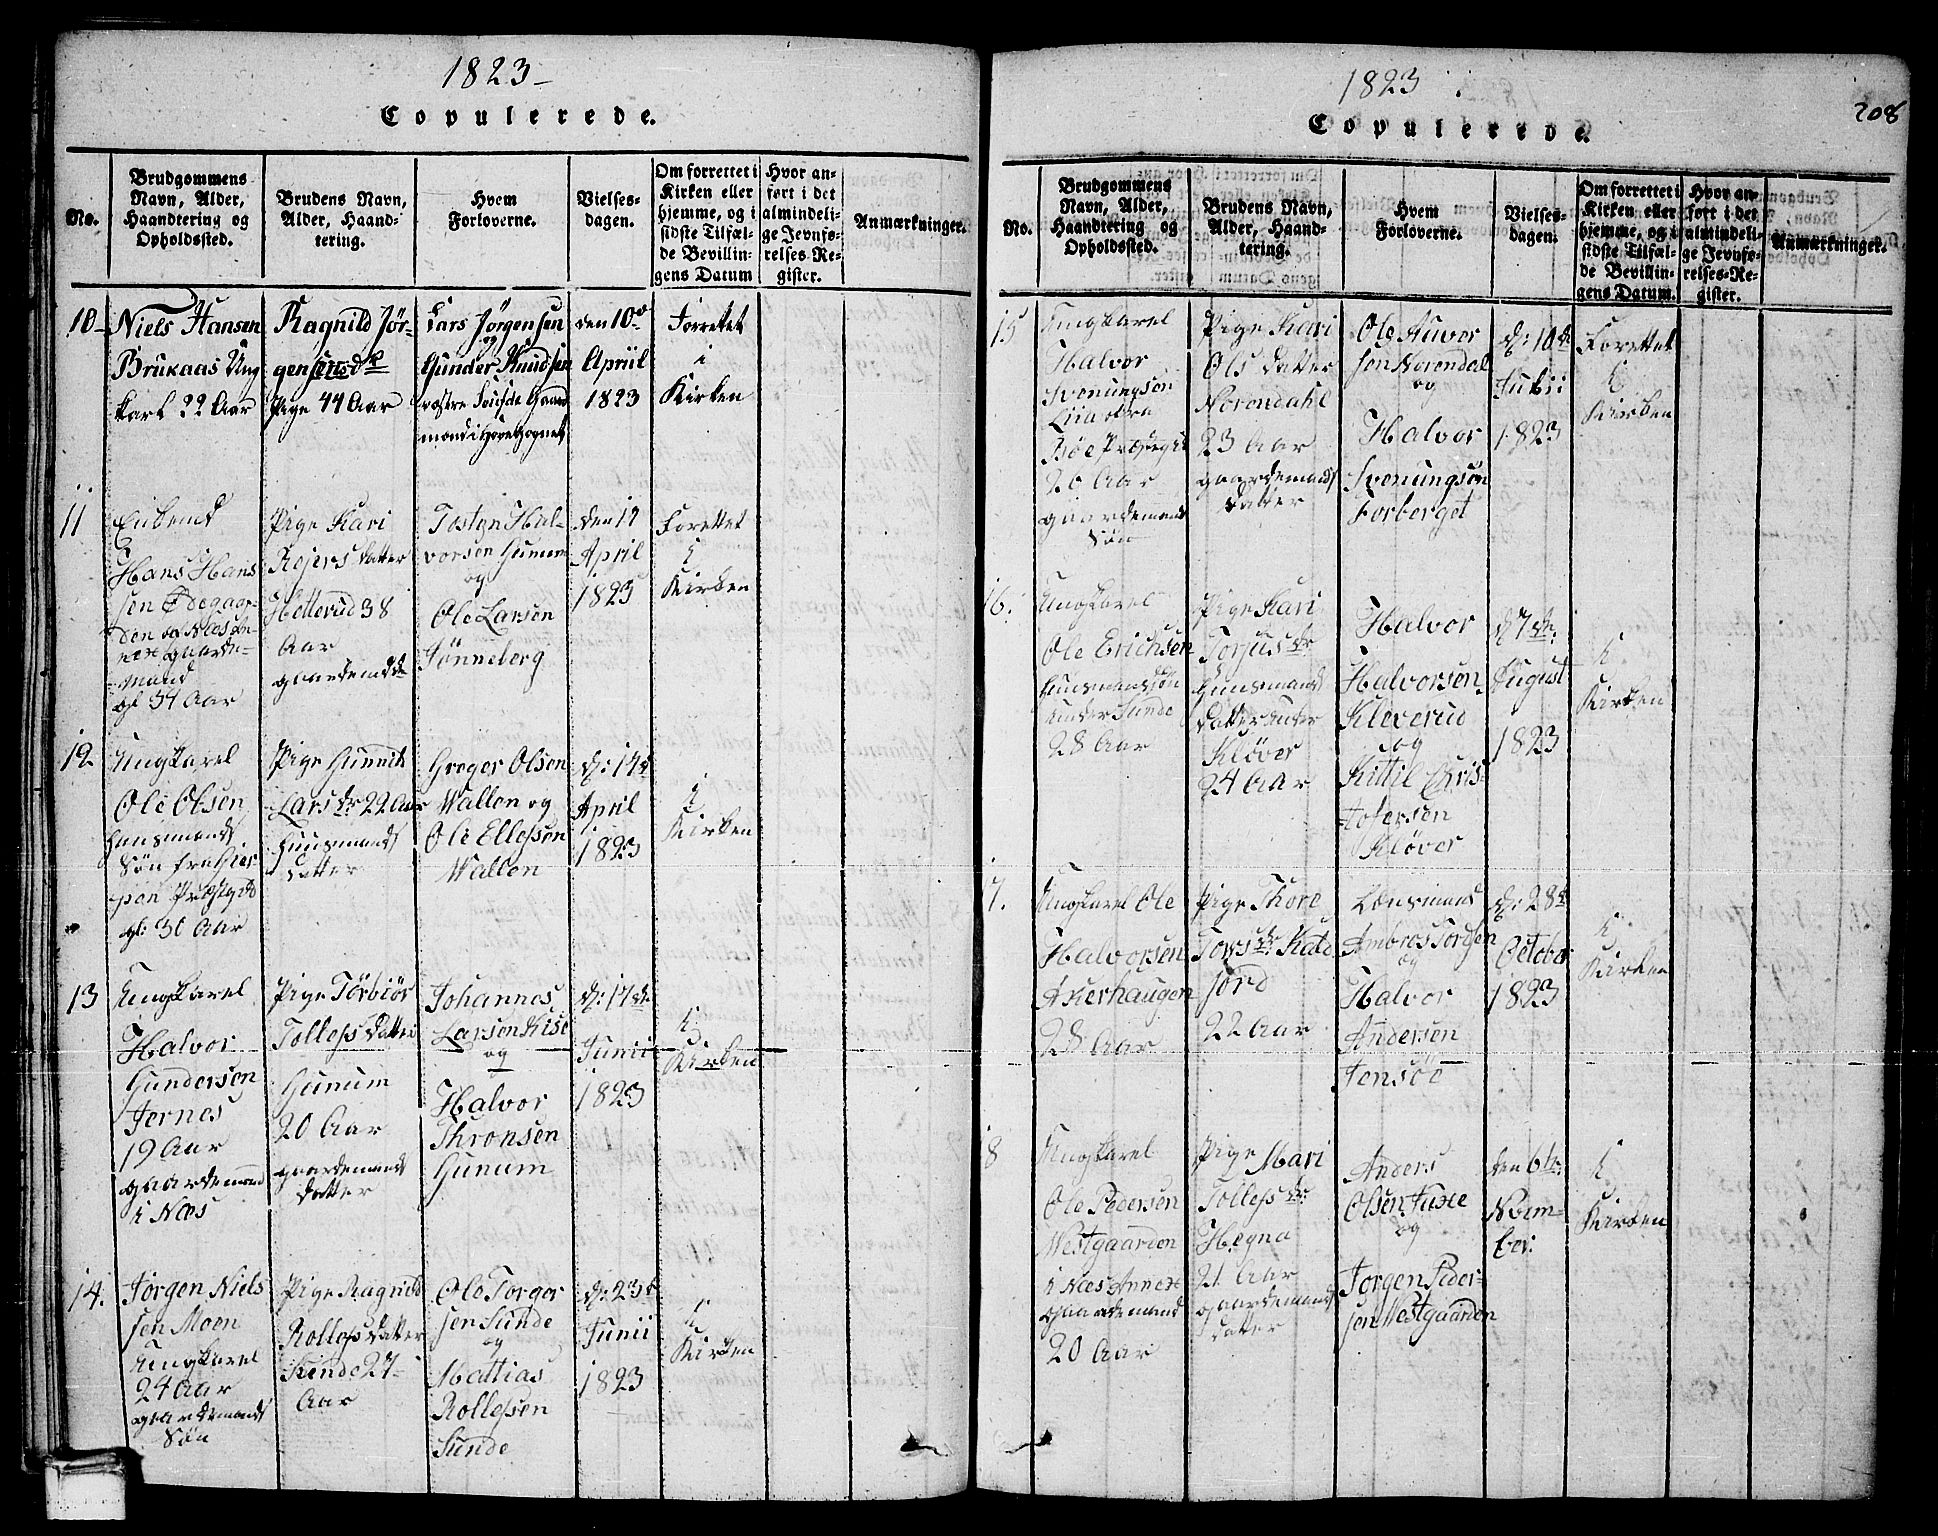 1823
Copulerede.
No.
Brudgommens
Navn, Alder,
Haandtering og
Opholdssted.
Brudens Navn,
Alder, Haand-
tering.
Hvem
Forloverne.
Vielses-
dagen.
Om forrettet i
Kirken eller
hjemme, og i
sidste Tilfæl-
de Bevillin-
gens Datum
Hvor an-
ført i det
almindeli-
ge Jevnfø-
relses-Re-
gister.
Anmærkninger.
10
Niels Hansen
Brukaas Ung
karl 22 Aar
Ragnild Jør-
gensens
Pige 44 Aar
Lars Jørgensen
og
Gunder Knudsen
den 10
Apriil
1823
Forrettet
i
Kirken
11
Enkemd
Hans Hans
sen Ødegaar-
den af Næs An-
nex gaarde-
mand
gl 34 Aar
Pige Kari
Rejers datter
Hetterud 38
Aar
gaardemds
Hal-
vorsen Hunum
og
Ole Larsen
Tønneberg
den 17
April
1823
Forettet
i
Kirken
12
Ungkarel
Ole Olsen
huusmands
Søn fra Hier
Præstgield
gl: 30 Aar
Pige Gunnild
Lars dr 22 Aar
huusmands
datter
Greger Olsen
Wallen og
Ole Ellefssen
Wallen
d: 17
April
1823
i
Kirken
13
Ungkarel
Halvor
Gundersen
Jernes
19 Aar
gaardemand
i Næs
Pige Torbiør
Tollefs datter
Hunum
20 Aar
gaardemands
datter
Johannes
Larsen Kise
og
Halvor
Thronsen
Hunum
d: 17de
Junii
1823
i
Kirken
14.
Jørgen Niels
sen Moen
Ungkarel
24 Aar
gaardemands
Søn
Pige Ragnild
Rollefs datter
Sunde 27
Aar
Ole Torger
sen Sunde
og
Mattias
Rollefsen
Sunde
d: 23
Junii
1823
i
Kirken
1823
208
Copulerede.
No.
Brudgommens
Navn, Alder,
Haandtering og
Opholdssted.
Brudens Navn,
Alder, Haand-
tering.
Hvem
Forloverne.
Vielses-
dagen.
Om forrettet i
Kirken eller
hjemme, og i
sidste Tilfæl-
de Bevillin-
gens Datum.
Hvor an-
ført i det
almindeli-
ge Jevnfø-
relses-Re-
gister.
Anmærkninger.
15
Ungkarel
Halvor
Svenungsøn
Liia øvre
Bøe
26 Aar
gaardemands
Søn
Pige Kari
Ols datter
Norendahl
23 Aar
gaardemands
datter
Ole Auver
sen Norendal
og
Halvor
Svenungsøn
Forberget
d: 10de
Julii
1823
Forettet
i
Kirken
16.
Ungkarel
Ole Erichsen
huusmandssøn
under Sunde
28 Aar
Pige Kari
Torjus dr
huusmands
datter under
Kløver
24 Aar
Halvor
Halvorsen
Kleverud
og
Kittil Chris-
tofersen
Kløver
d 7de
August
1823
i
Kirken
17.
Ungkarel Ole
Halvorsen
Akerhaugen
28 Aar
Pige Thore
Tovs dr Kald
jord
22 Aar
Lensmand
Ambros
og
Halvor
Andersen
Jensöe
d: 28
October
1823
i
Kirken
18
Ungkarel
Ole Pedersen
Westgaarden
i Næs Annex
gaardemand
20 Aar
Pige Mari
Tollefs dr
Hegna
21 Aar
gaardemands
datter
Anders
Olsen
og
Jørgen Peder-
sen Westgaarden
den 6te
Novem-
ber:
i
Kirken